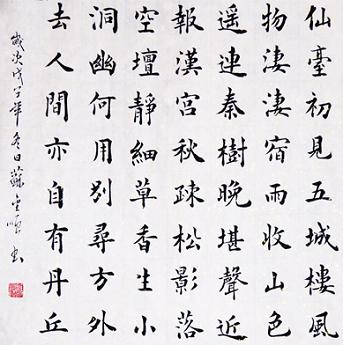 仙臺初見五城樓風
物淒淒宿雨收山色
遥連秦樹晚堪聲近
報漢宮秋疎松影落
空壇靜細草香生小
洞幽何用别尋方外
去人間亦自有丹丘
歲次戊子年冬日蘇